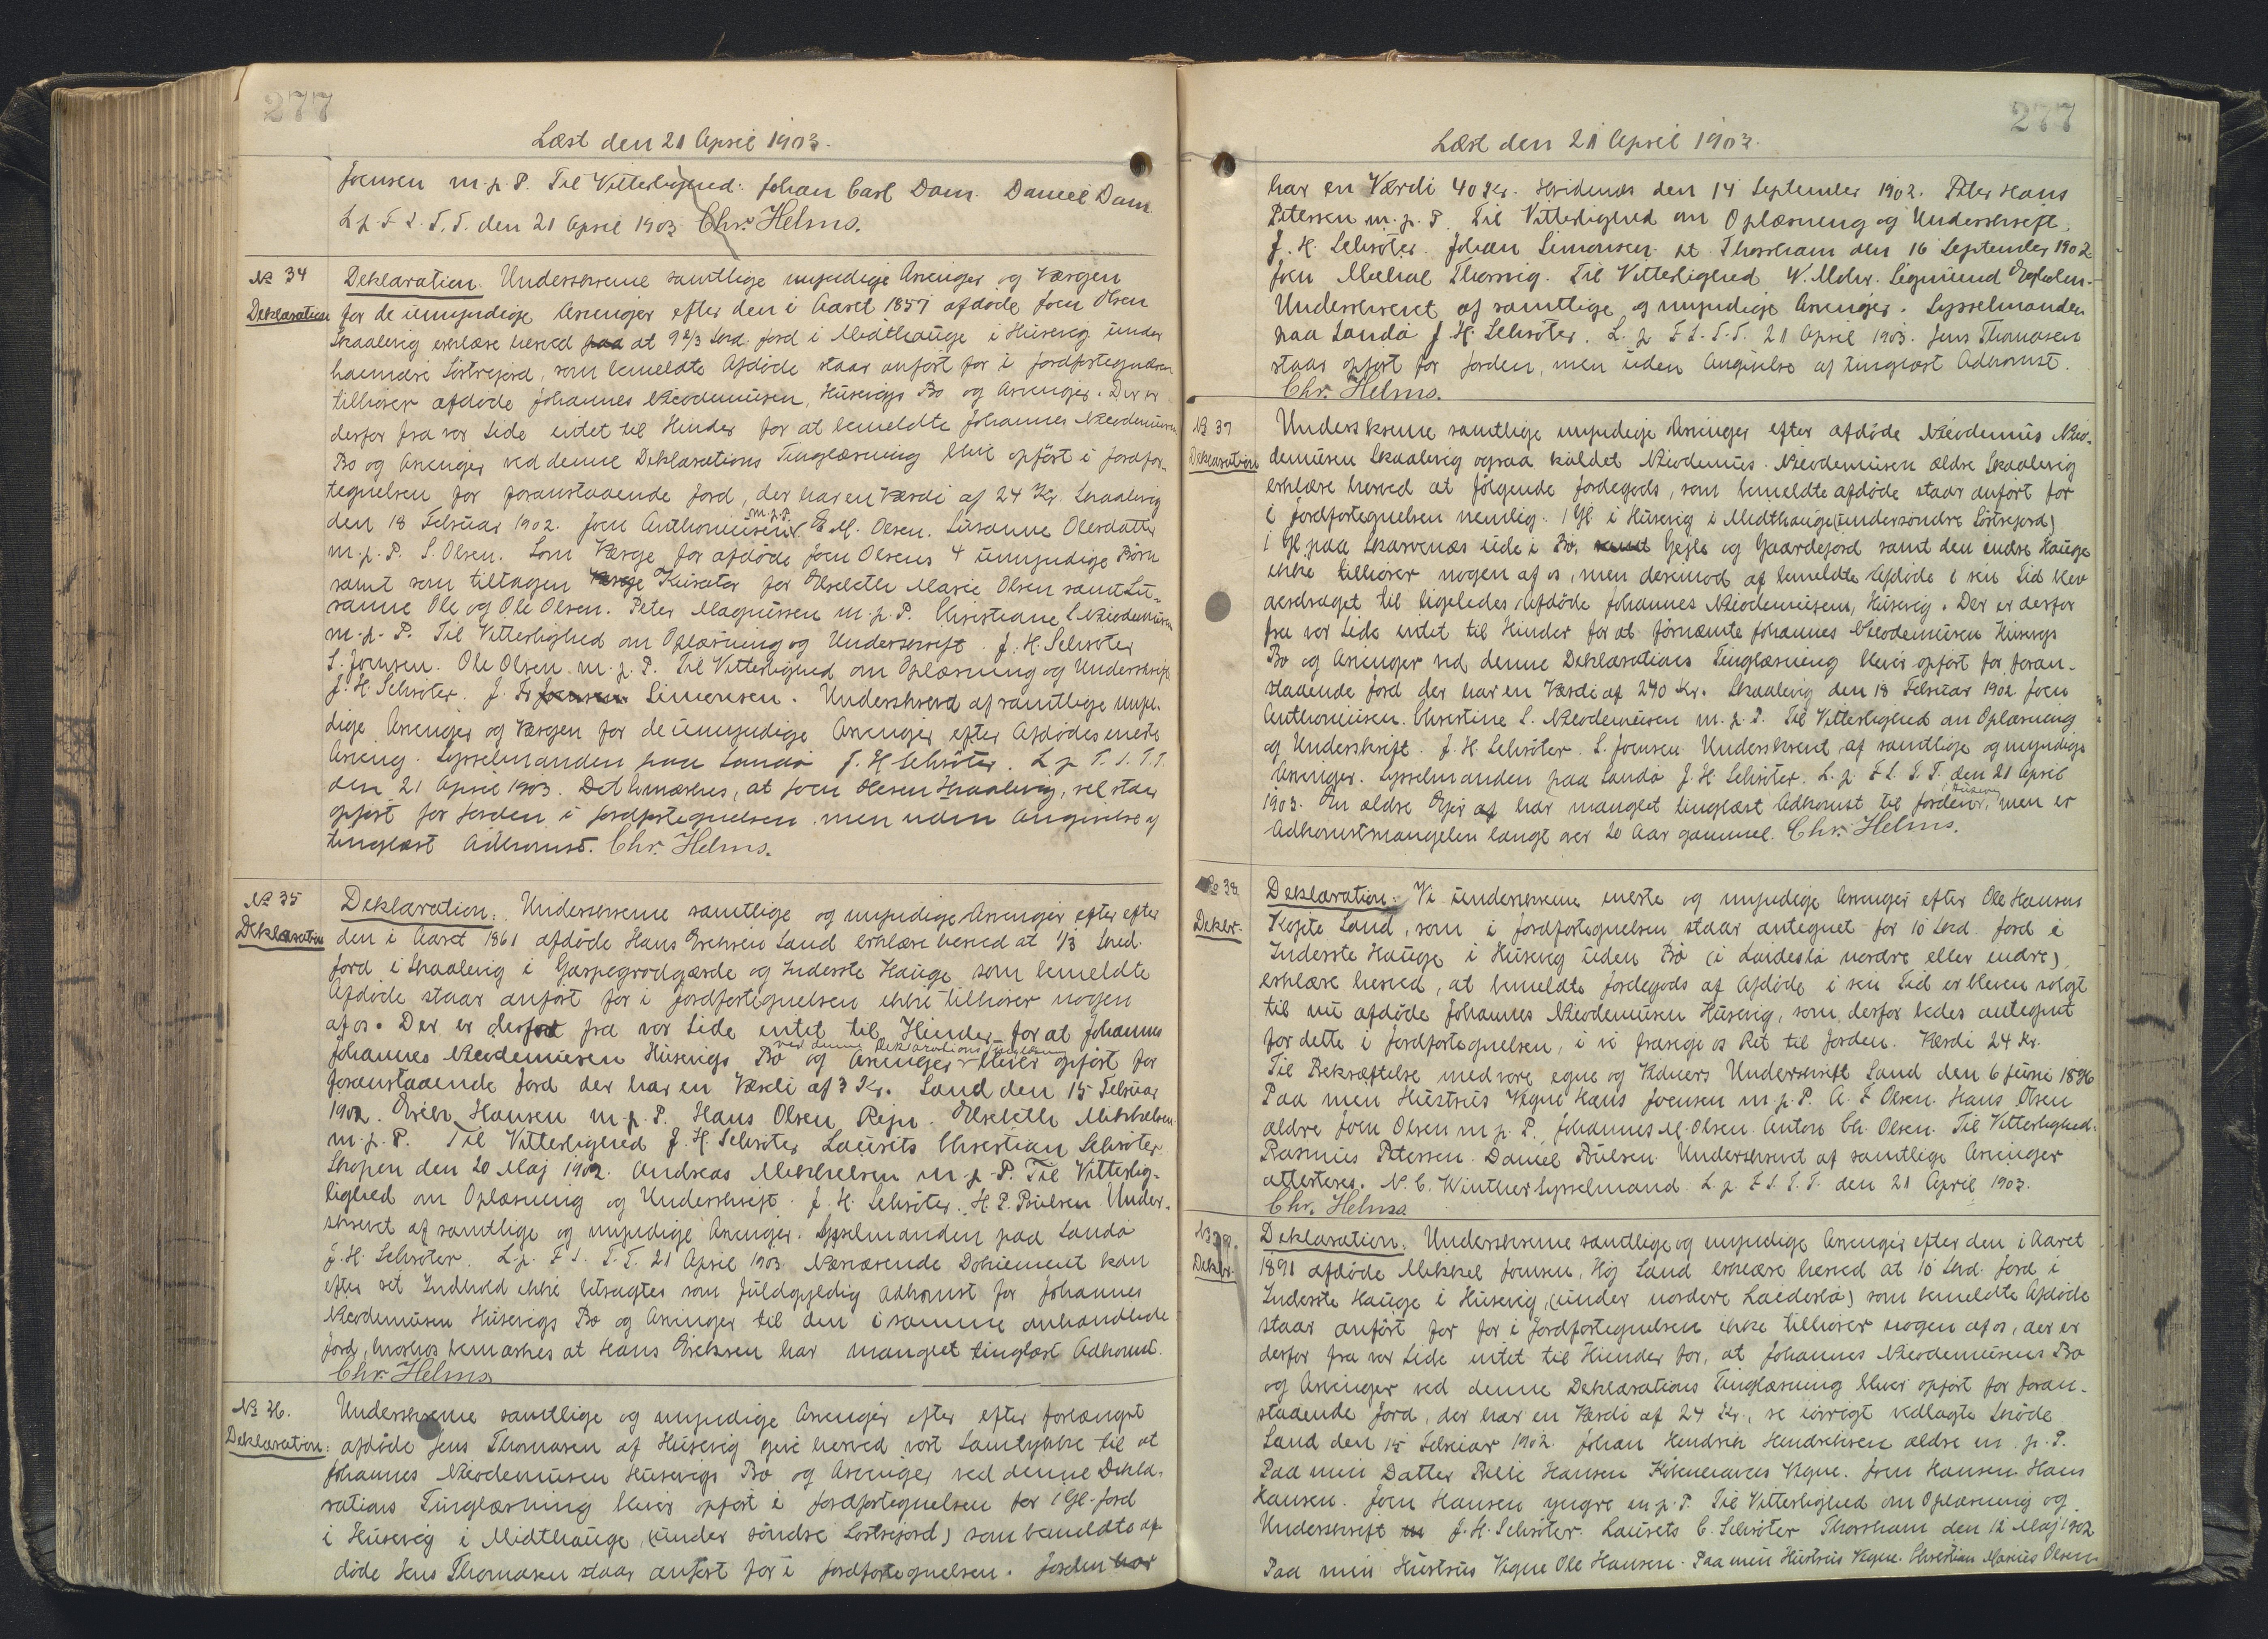 277
Læst den 21 April 1903.
Joensen m.p.P. Til Vitterlighed: Johan Carl Dam. Daniel Dam
L p F S. T. T. den 21 April 1903 Chr. Helms.
№ 34
Deklaration
Deklaration. Underskrevne samtlige myndige Arvinger og Værgen
for de umyndige Arvinger efter den i Aaret 1857 afdøde Joen Olsen
Skaalevig erklære herved paa at 9 2/3 Skd. Jord i Midthauge i Husevig under
søndre Lostrejord, som bemeldte Afdøde staar anført for i Jordfortegnelsen
tilhører afdøde Johannes Nicodemusen, Husevigs Bo og Arvinger. Der er
derfor fra vor Side intet til Hinder for at bemeldte Johannes Nicodemusens
Bo og Arvinger ved denne Deklarations Tinglæsning blive opført i Jordfor-
tegnelsen for foranstaaende Jord, der har en Værdi af 24 Kr. Skaalevig
den 18 Februar 1902. Joen Anthoniusen m.p.P. E M. Olsen. Susanne Olesdatter
m.p.P. S. Olsen. Som Værge for afdøde Joen Olsens 4 umyndige Børn
samt som tiltagen Værge Kurator for Elsebeth Marie Olsen samt Su-
sanne Ole og Ole Olsen. Peter Magnussen m.p.P. Christiane S. Nicodemusen
m.p.P. Til Vitterlighed om Oplæsning og Underskrift J. H. Schrøter
S. Joensen. Ole Olsen m.p.P. Til Vitterlighed om Oplæsning og Underskrift
J. H. Schrøter. J. Fr Joensen Simonsen. Underskrevet af samtlige myn-
dige Arvinger og Værgen for de umyndige Arvinger efter Afdødes eneste
Arving. Sysselmanden paa Sandø J. H Schrøter. L p F. S. T. T.
den 21 April 1903. Det bemærkes, at Joen Olesen Skaalevig, vel staar
opført for Jorden i Jordfortegnelsen men uden Angivelse af
tinglæst Adkomst. Chr. Helms.
№ 35
Deklaration
Deklaration: Underskrevne samtlige og myndige Arvinger efter efter
den i Aaret 1861 afdøde Hans Erichsen Sand erklære herved at 1/3 Skd.
Jord i Skaalevig i Gaspegrodgærde og Inderste Hauge som bemeldte
Afdøde staar anført for i Jordfortegnelsen ikke tilhører nogen
af os. Der er derfor fra vor Side intet til Hinder for at Johannes
Johannes Nicodemusen Husevigs Bo og Arvinger ved denne Deklarations Tinglæsning bliver opført for
foranstaaende Jord der har en Værdi af 3 Kr. Sand den 15 Februar
1902. Erich Hansen m.p.P. Hans Olsen Rejn. Elsebeth Mikkelsen
m.p.P. Til Vitterlighed J. H. Schrøter Laurits Christian Schrøter
Skopen den 20 Maj 1902. Andreas Mikkelsen m.p.P. Til Vitterlig-
lighed om Oplæsning og Underskrift. J. H. Schrøter. H. P. Poulsen. Under-
skrevet af samtlige og myndige Arvinger. Sysselmanden paa Sandø
J. H. Schrøter. L.p. F S. T. T. 21 April 1903 Nærværende Dokument kan
efter sit Indhold ikke betragtes som fuldgyldig Adkomst for Johannes
Nicodemusen Husevigs Bo og Arvinger til den i samme omhandlede
Jord, hvorhos bemærkes at Hans Erichsen har manglet tinglæst Adkomst.
Chr. Helms
№ 36.
Deklaration:
Underskrevne samtlige og myndige Arvinger efter efter forlængst
afdøde Jens Thomasen af Husevig give herved vort Samtykke til at
Johannes Nicodemusen Husevigs Bo og Arvinger ved denne Dekla-
rations Tinglæsning bliver opført i Jordfortegnelsen for 1 Gl. Jord
i Husevig i Midthauge, (under søndre Lostrejord) som bemeldte af-
døde Jens Thomasen staar anført for i Jordfortegnelsen. Jorden har
277
Læst den 21 April 1903.
har en Værdi 40 Kr. Hvidenæs den 14 September 1902. Peter Hans
Petersen m.p.P. Til Vitterlighed om Oplæsning og Underskrift.
J. H. Schrøter. Johan Simonsen pt Thorshavn den 16 September 1902
Joen Michal Thomsig. Til Vitterlighed W. Mohr. Sigmund
Underskrevet af samtlige og myndige Arvinger. Sysselmanden
paa Sandø J. H. Schrøter. L. p F S. T. T. 21 April 1903. Jens Thomasen
staar opført for Jorden, men uden Angivelse af tinglæst Adkomst.
Chr. Helms.
№ 37
Deklaration
Underskrevne samtlige myndige Arvinger efter afdøde Nicodemus Nico-
demusen Skaalevig ogsaa kaldet Nicodemus Nicodemusen ældre Skaalevig
erklære herved at følgende Jordegods, som bemeldte afdøde staar anført for
i Jordfortegnelsen nemlig. 1 Gl. i Husevig i Midthauge (under søndre Lostrejord)
1 Gl. paa Skarvenæs ude i Bø, samt Gejle og Gaardejord samt den indre Hauge
ikke tilhører nogen af os, men derimod af bemeldte Afdøde i sin Tid blev
overdraget til ligeledes Afdøde Johannes Nicodemusen, Husevig. Der er derfor
fra vor Side intet til Hinder for at førnævnte Johannes Nicodemusen Husevigs
Bo og Arvinger ved denne Deklarations Tinglæsning bliver opført for foran-
staaende Jord der har en Værdi af 240 Kr. Skaalevig den 18 Februar 1902 Joen
Anthoniusen. Christine S. Nicodemusen m.p.P. Til Vitterlighed om Oplæsning
og Underskrift. J. H. Schrøter. S. Joensen Underskrevet af samtlige og myndige
Arvinger. Sysselmanden paa Sandø J. H. Schrøter. L.p. F S. T. T. den 21 April
1903. En ældre Ejer af har manglet tinglæst Adkomst til Jorden i Husevig, men er
Adkomstmangelen langt over 20 Aar gammel. Chr. Helms.
№ 38
Deklar.
Deklaration. Vi underskrevne eneste og myndige Arvinger efter Ole Hansen
Kojte Sand, som i Jordfortegnelsen staar antegnet for 10 Skd. Jord i
Inderste Hauge i Husevig uden Bø (i Laideslá nordre eller indre),
erklære herved, at bemeldte Jordegods af Afdøde i sin Tid er bleven solgt
til nu afdøde Johannes Nicodemusen Husevig, som derfor bedes antegnet
for dette i Jordfortegnelsen, i vi frasige os Ret til Jorden. Værdi 24 Kr.
Til Bekræftelse med vore egne og Vidners Underskrift Sand den 6 Juni 1896
Paa min Hustrus Vegne Hans Joensen m.p.P. A. F Olsen. Hans Olsen
ældre Joen Olsen m.p.P. Johannes M. Olsen. Anton Ch. Olsen. Til Vitterlighed:
Rasmus Petersen. Daniel Poulsen. Underskrevet af samtlige Arvinger
attesteres. N. C. Winther Sysselmand L.p. F S. T. T. den 21 April 1903.
Chr. Helms
№ 39.
Deklar.
Deklaration. Underskrevne samtlige og myndige Arvinger efter den i Aaret
1891 afdøde Mikkel Joensen, Høj Sand erklære herved at 10 Skd. Jord i
Inderste Hauge i Husevig, (under nordere Laideslá) som bemeldte Afdøde
staar anført for for i Jordfortegnelsen ikke tilhører nogen af os, der er
derfor fra vor Side intet til Hinder for, at Johannes Nicodemusens Bo
og Arvinger ved denne Deklarations Tinglæsning bliver opført for foran-
staaende Jord, der har en Værdi af 24 Kr, se iøvrigt vedlagte Skøde
Sand den 15 Februar 1902. Johan Hendrik Hendriksen ældre m.p.P.
Paa min Datter Hansen Københavns Vegne. Joen Hansen Hans
Hansen. Joen Hansen yngre m.p.P. Til Vitterlighed om Oplæsning og
Underskrift m J. H. Schrøter. Laurets C. Schrøter Thorshavn den 12 Maj 1902
Paa min Hustrus Vegne Ole Hansen. Paa min Hustrus Vegne. Christian Marius Olsen